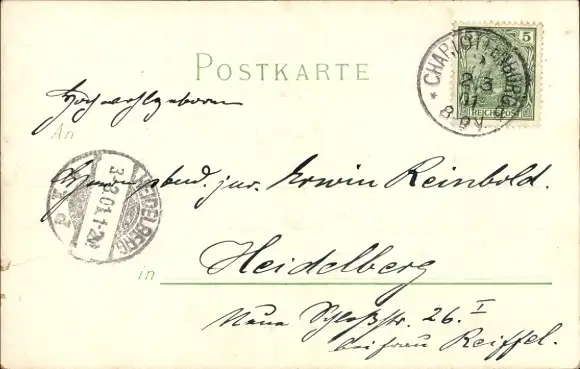 CHARLOTTENBURG
* 2/3 01 8-9V. *
5
REICHSPOST
POSTKARTE
Hochwohlgeboren
An
Herrn stud. jur. Erwin Reinbold.
HEIDELBERG
3-3.01.1-2N.
in
Heidelberg
Neue Schloßstr. 26. I
bei Frau Reiffel.